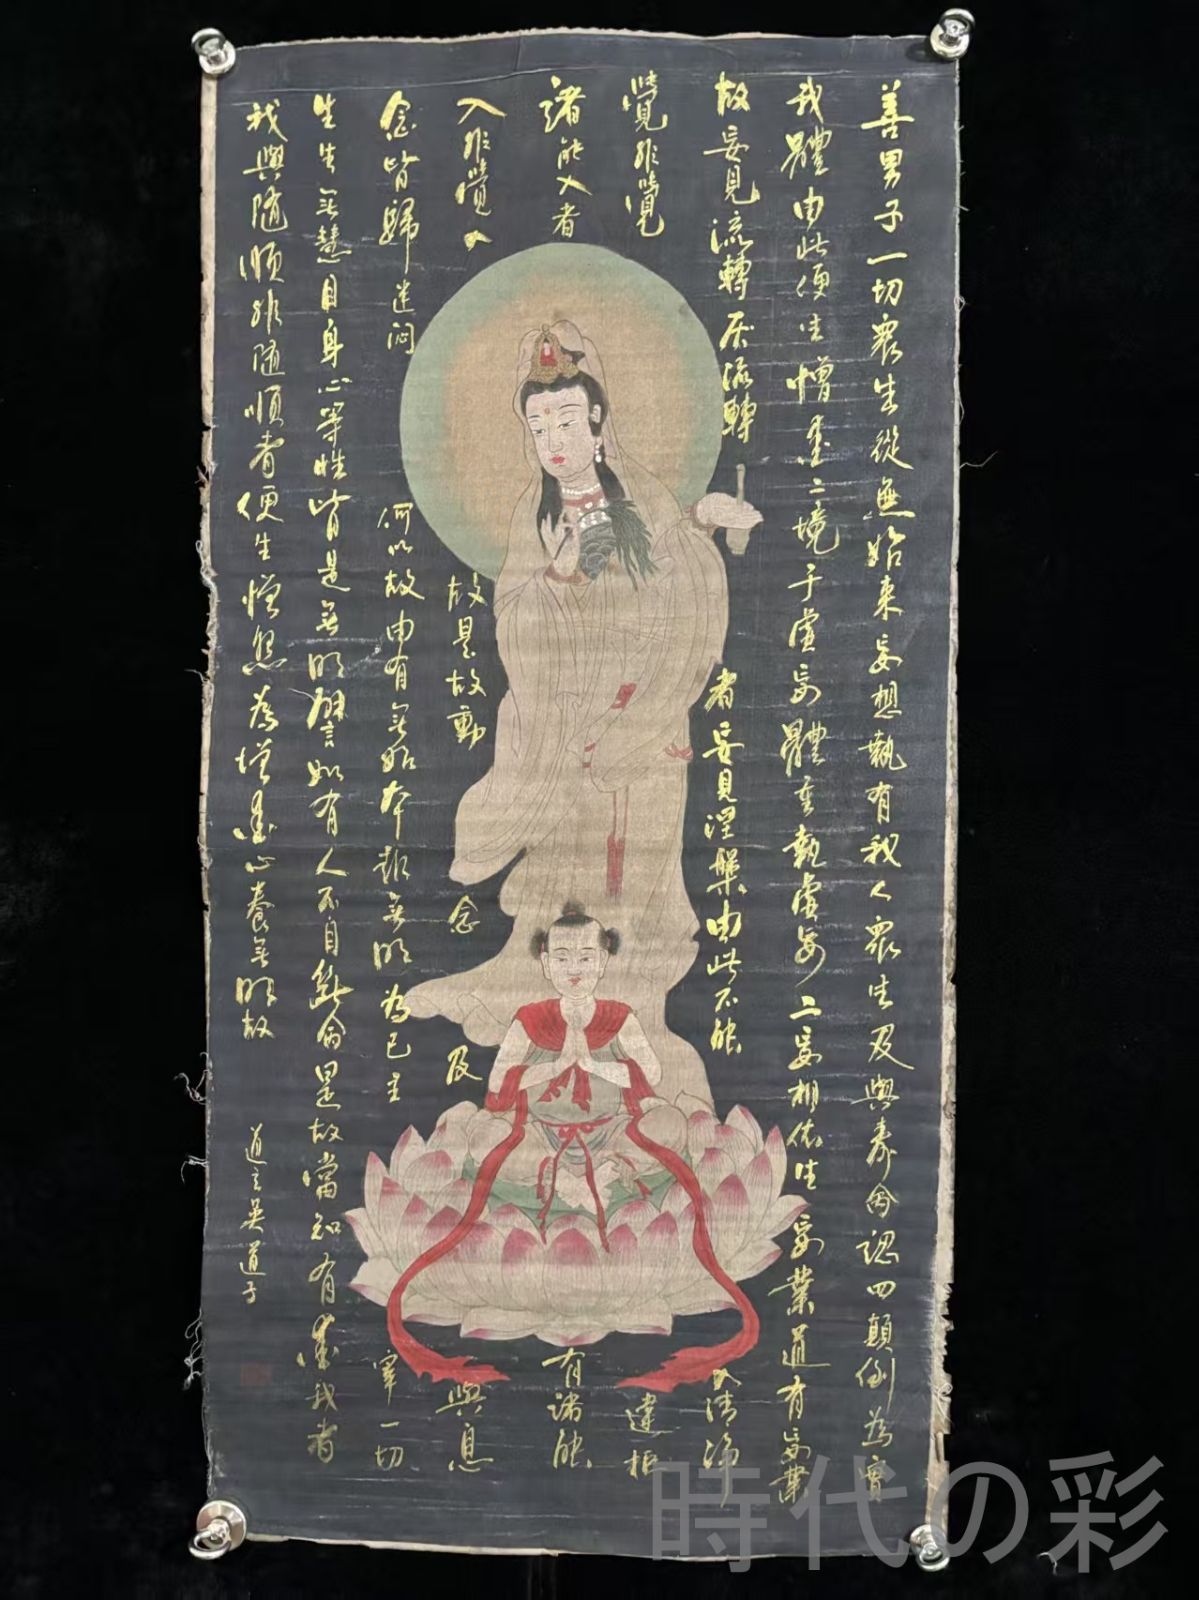 善男子一切衆生從無始來妄想執有我人衆生及與壽命認四顛倒為實
我體由此便生憎愛二境于虛妄體重執虛妄二妄相依生妄業道有妄業
故妄見流轉厭流轉者妄見涅槃由此不能入清淨
覺非覺違拒
諸能入者有諸能
入非覺入故是故動念及與息
念皆歸迷悶何以故由有無始本報無明為己主宰一切
生生無慧目身心等性皆是無明譬如有人不自斷命是故當知有愛我者
我與隨順非隨順者便生憎怨為憎愛心養無明故
道玄吳道子
時代の彩